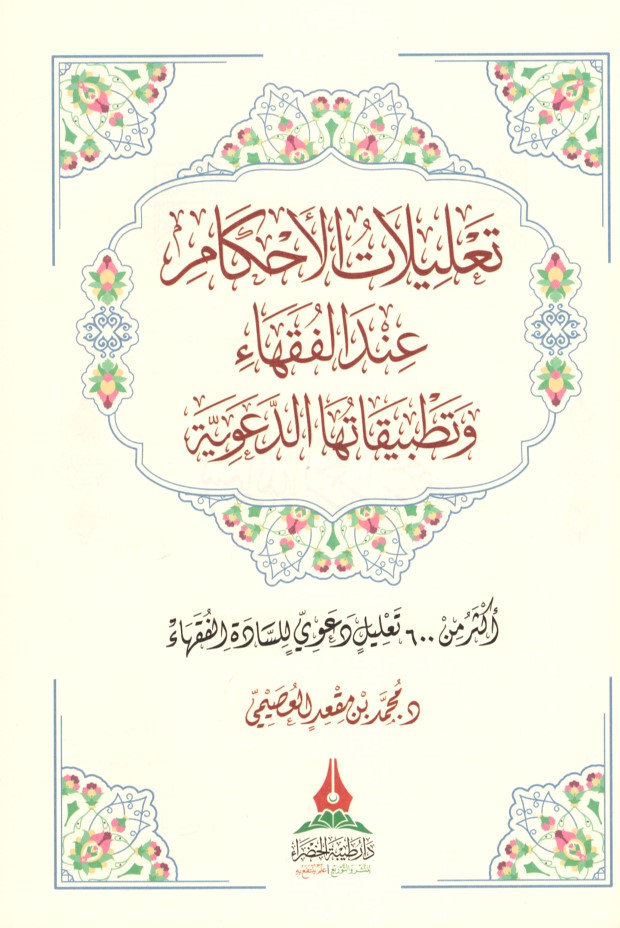 تَعْلِيلَاتُ الأَحْكَامِ
عِنْدَ الفُقَهَاءِ
وَتَطْبِيقَاتُهَا الدَّعَوِيَّة
أَكْثَرُ مِنْ ٦٠٠ تَعْلِيلٍ دَعَوِيٍّ لِلسَّادَةِ الفُقَهَاءْ
د. مُحَمَّد بْن مقعدٍ العُصَيْمِيّ
دَارُ طَيْبَةَ الخَضْرَاء
للنشر والتوزيع | علم ينتفع به